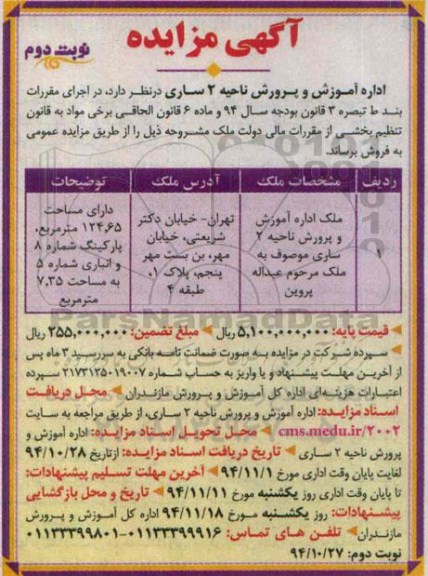 آگهی مزایده
نوبت دوم
اداره آموزش و پرورش ناحیه ۲ ساری درنظر دارد، در اجرای مقررات
بند ط تبصره ۳ قانون بودجه سال ۹۴ و ماده ۶ قانون الحاقی برخی مواد به قانون
تنظیم بخشی از مقررات مالی دولت ملک مشروحه ذیل را از طریق مزایده عمومی
به فروش برساند.
ردیف مشخصات ملک آدرس ملک توضیحات
۱
ملک اداره آموزش
و پرورش ناحیه ۲
ساری موصوف به
ملک مرحوم عبداله
پروین
تهران- خیابان دکتر
شریعتی، خیابان
مهر، بن بست مهر
پنجم، پلاک ۰۱
طبقه ۴
دارای مساحت
۱۲۴,۶۵ مترمربع،
پارکینگ شماره ۸
و انباری شماره ۵
به مساحت ۷,۳۵
مترمربع
ParsNamadData
قیمت پایه: ۵,۱۰۰,۰۰۰,۰۰۰ ریال مبلغ تضمین: ۲۵۵,۰۰۰,۰۰۰ ریال
سپرده شرکت در مزایده به صورت ضمانت نامه بانکی به سررسید ۳ ماه پس
از آخرین مهلت پیشنهاد و یا واریز به حساب شماره ۲۱۷۳۱۲۵۰۱۹۰۰۷ سپرده
اعتبارات هزینه‌ای اداره کل آموزش و پرورش مازندران محل دریافت
اسناد مزایده: اداره آموزش و پرورش ناحیه ۲ ساری، از طریق مراجعه به سایت
cms.medu.ir/۲۰۰۲ محل تحویل اسناد مزایده: اداره آموزش و
پرورش ناحیه ۲ ساری تاریخ دریافت اسناد مزایده: ازتاریخ ۹۴/۱۰/۲۸
لغایت پایان وقت اداری مورخ ۹۴/۱۱/۱ آخرین مهلت تسلیم پیشنهادات:
تا پایان وقت اداری روز یکشنبه مورخ ۹۴/۱۱/۱۱ تاریخ و محل بازگشایی
پیشنهادات: روز یکشنبه مورخ ۹۴/۱۱/۱۸ اداره کل آموزش و پرورش
مازندران تلفن های تماس: ۰۱۱۳۳۳۹۹۹۱۶-۰۱۱۳۳۳۹۹۸۰۱
نوبت دوم: ۹۴/۱۰/۲۷